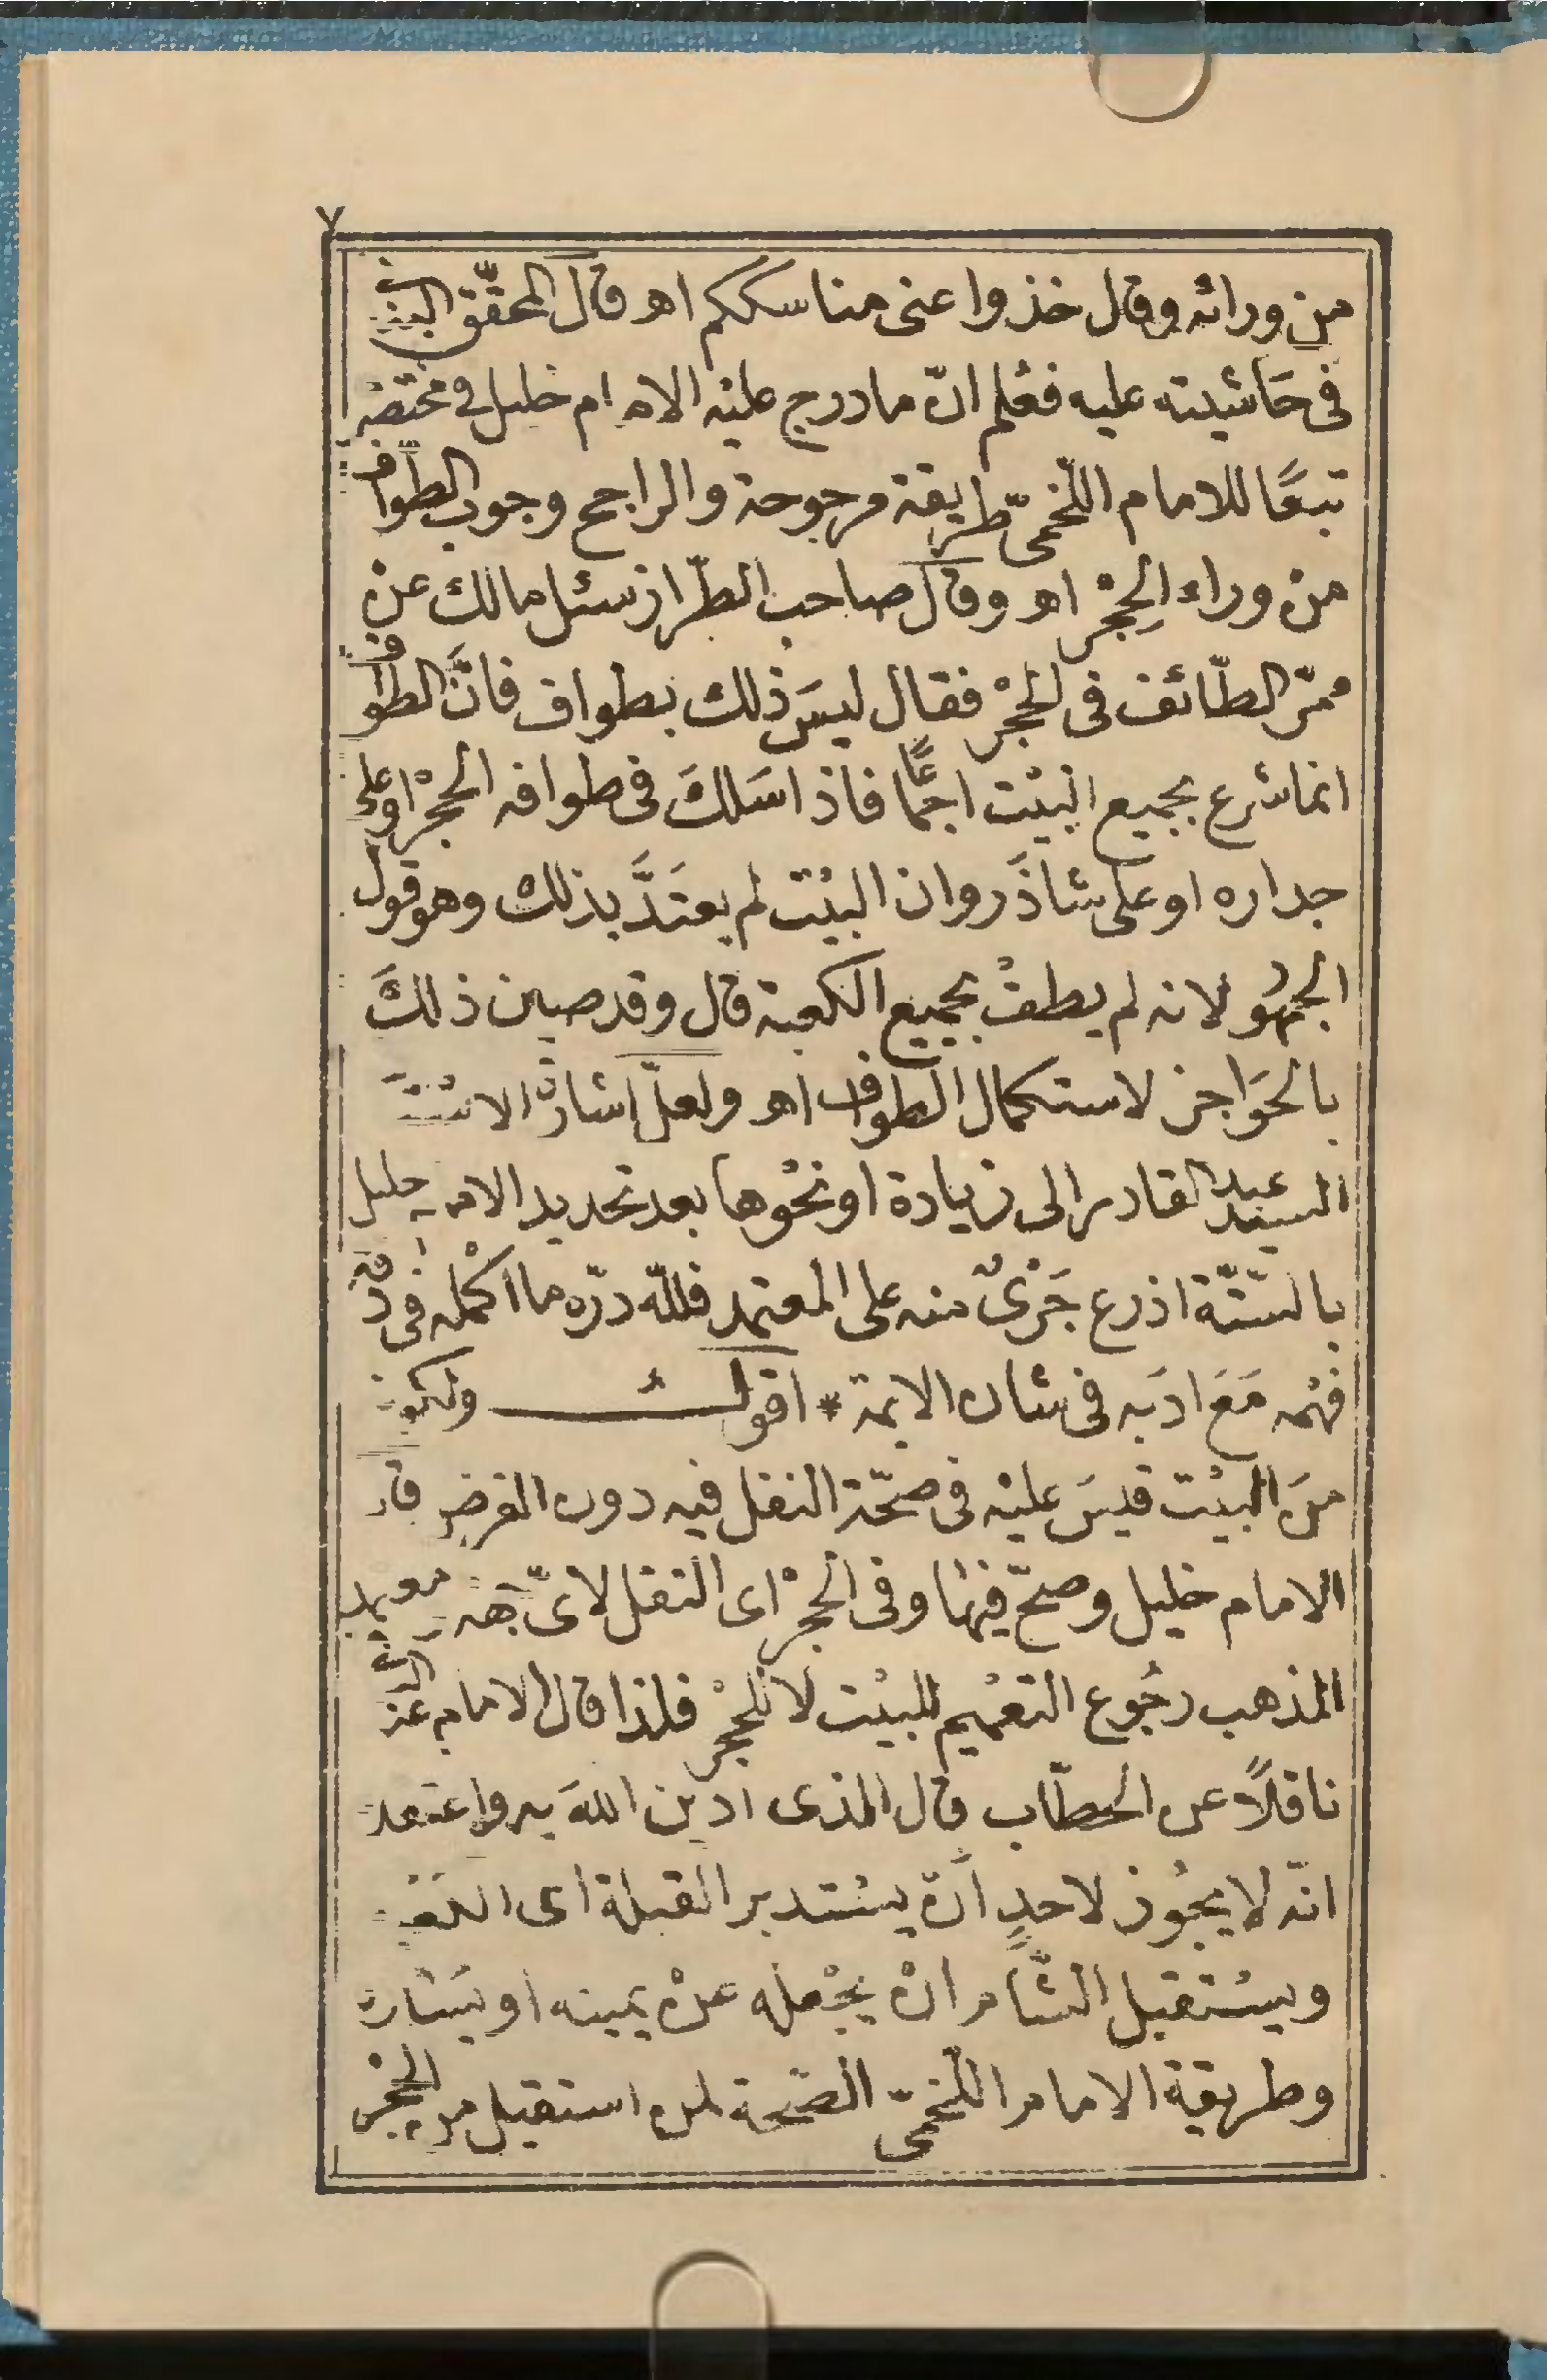 ٧
من ورائه وقال خذوا عنى مناسككم اهـ قال المحقّق البنانى
فى حَاشيته عليه فعُلم انّ ما درج عليْه الامام خليل فى مختصره
تبعًا للامام اللّخمىّ طريقة مرجوحة والراجح وجوب الطّواف
منْ وراء الحِجْر اهـ وقال صاحب الطّراز سئل مالك عنْ
ممّر الطّائف فى الحْجر فقال ليسَ ذلك بطواف فانَّ الطواف
انما شرع بجميع البيْت اجماعًا فاذا سَلكَ فى طوافه الحجْر او على
جداره او على شاذَروان البيْت لم يعتَدَّ بذلك وهو قول
الجمهُور لانه لم يطفْ بجميع الكعبة قال وقد صين ذلكَ
بالحَواجز لاستكمال الطواف اهـ ولعلّ اشارة الاستَاذ
السيد عبد القادر الى زيادة او نحْوها بعد تحديد الامام خليل
بالسّتّة اذرع جَرْىٌ منه على المعتمد فللّه درّه ما اكْمله فى دقّة
فهْمه مَعَ ادَبه فى شان الايمة * اقولُ ولكونه
منَ البيْت قيسَ عليْه فى صحّة النفل فيه دون الفرض قال
الامام خليل وصحّ فيها وفى الحجْر اى النفل لاىّ جهة ومعتمد
المذهب رجُوع التعْميم للبيْت لا للحجْر فلذا قال الامام عبْد الباقى
ناقلًا عن الحطّاب قال الذى ادين اللهَ به واعتقده
انّه لا يجُوز لاحدٍ انْ يسْتدبر القبلة اى الكعْبة
ويسْتقبل الشَّام اوْ يجْعله عنْ يمينه او يسَاره
وطريقة الامام اللّخمىّ الصّحة لمن استقبل من الحْجر